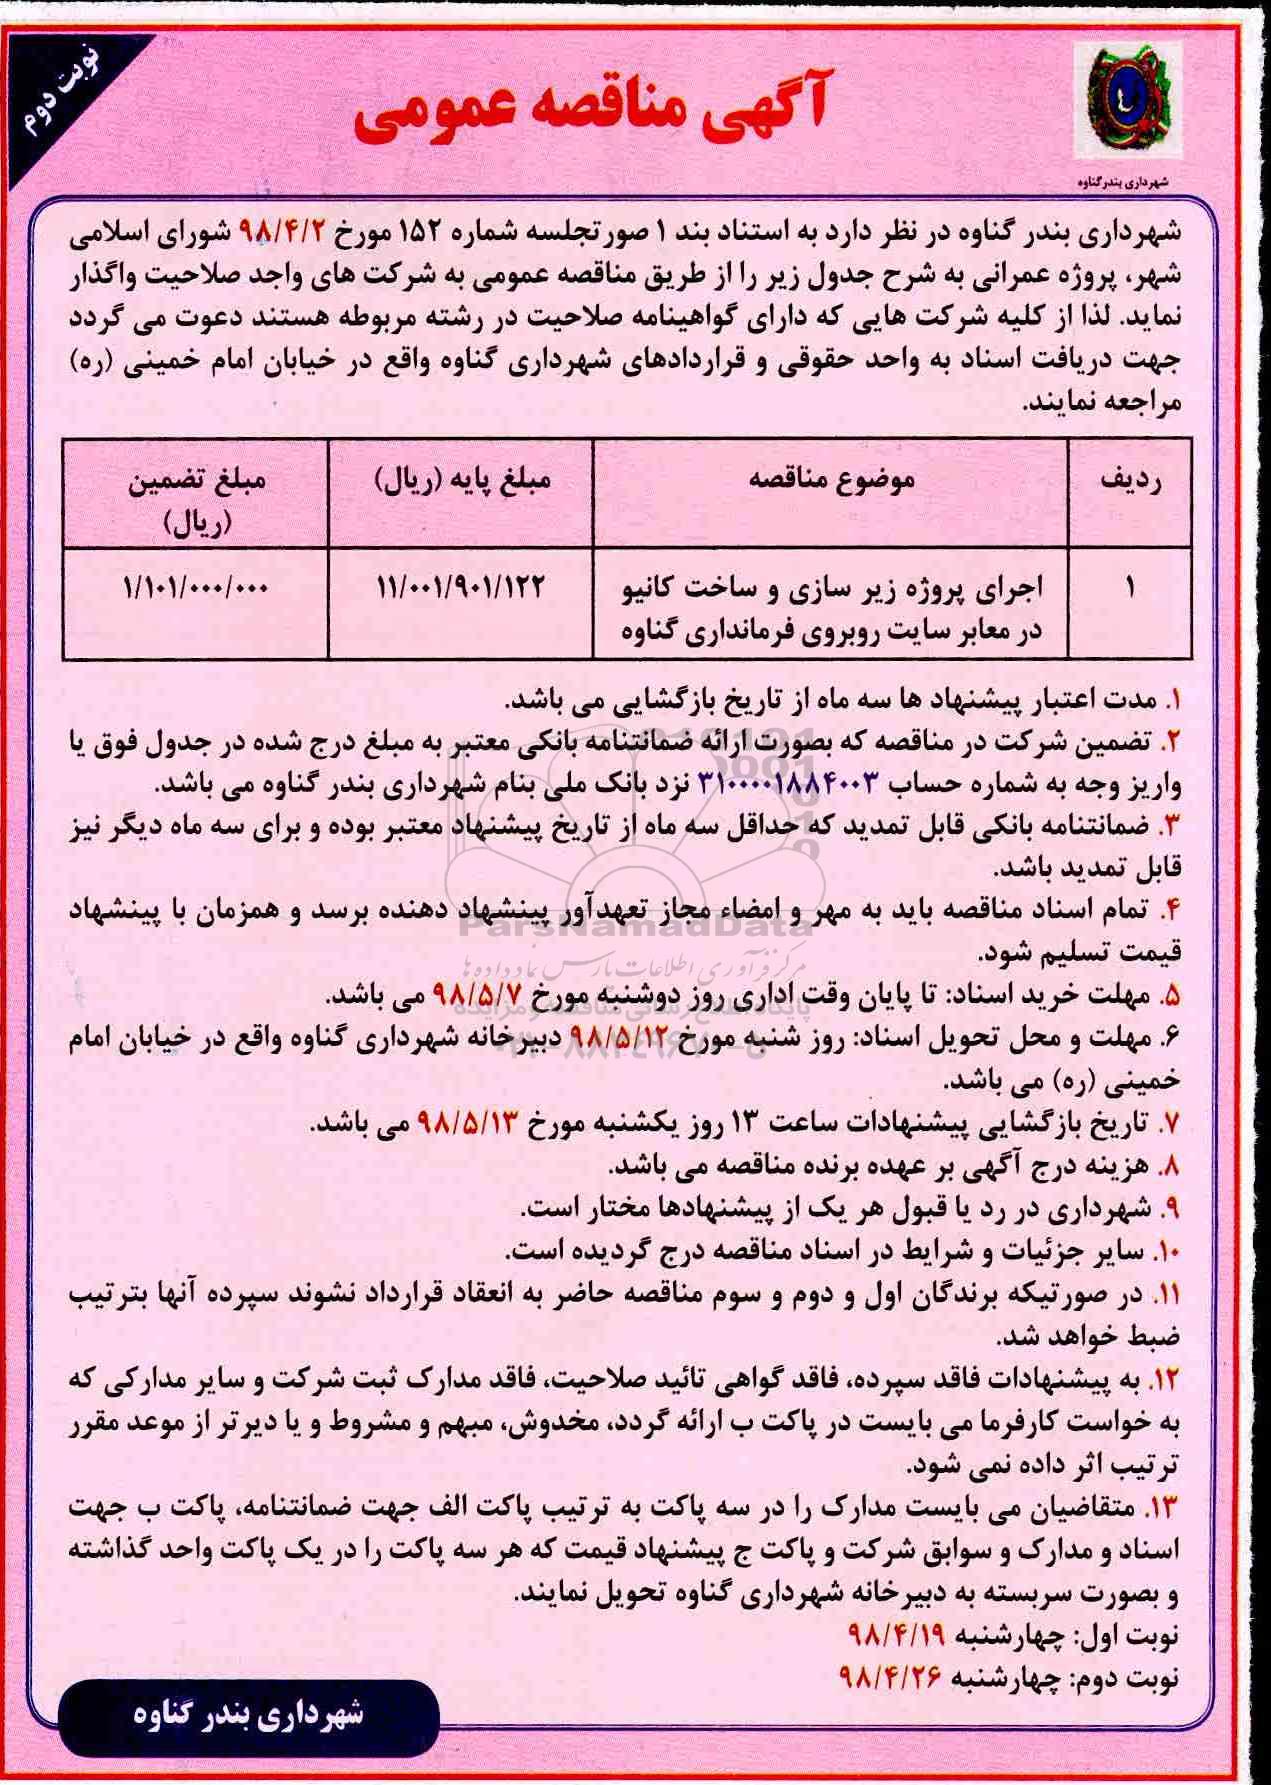 نوبت دوم
آگهی مناقصه عمومی
شهرداری بندرگناوه
شهرداری بندر گناوه در نظر دارد به استناد بند ۱ صورتجلسه شماره ۱۵۲ مورخ ۹۸/۴/۲ شورای اسلامی
شهر، پروژه عمرانی به شرح جدول زیر را از طریق مناقصه عمومی به شرکت های واجد صلاحیت واگذار
نماید. لذا از کلیه شرکت هایی که دارای گواهینامه صلاحیت در رشته مربوطه هستند دعوت می گردد
جهت دریافت اسناد به واحد حقوقی و قراردادهای شهرداری گناوه واقع در خیابان امام خمینی (ره)
مراجعه نمایند.
ردیف	موضوع مناقصه	مبلغ پایه (ریال)	مبلغ تضمین
(ریال)
۱	اجرای پروژه زیر سازی و ساخت کانیو	۱۱/۰۰۱/۹۰۱/۱۲۲	۱/۱۰۱/۰۰۰/۰۰۰
در معابر سایت روبروی فرمانداری گناوه
۱. مدت اعتبار پیشنهاد ها سه ماه از تاریخ بازگشایی می باشد.
۲. تضمین شرکت در مناقصه که بصورت ارائه ضمانتنامه بانکی معتبر به مبلغ درج شده در جدول فوق یا
واریز وجه به شماره حساب ۳۱۰۰۰۰۱۸۸۴۰۰۳ نزد بانک ملی بنام شهرداری بندر گناوه می باشد.
۳. ضمانتنامه بانکی قابل تمدید که حداقل سه ماه از تاریخ پیشنهاد معتبر بوده و برای سه ماه دیگر نیز
قابل تمدید باشد.
۴. تمام اسناد مناقصه باید به مهر و امضاء مجاز تعهدآور پینشهاد دهنده برسد و همزمان با پینشهاد
قیمت تسلیم شود.
ParsNamadData
مرکز فرآوری اطلاعات پارس نماد داده ها
۵. مهلت خرید اسناد: تا پایان وقت اداری روز دوشنبه مورخ ۹۸/۵/۷ می باشد.
پایگاه اطلاع رسانی مناقصه و مزایده
۶. مهلت و محل تحویل اسناد: روز شنبه مورخ ۹۸/۵/۱۲ دبیرخانه شهرداری گناوه واقع در خیابان امام
خمینی (ره) می باشد.
۷. تاریخ بازگشایی پیشنهادات ساعت ۱۳ روز یکشنبه مورخ ۹۸/۵/۱۳ می باشد.
۸. هزینه درج آگهی بر عهده برنده مناقصه می باشد.
۹. شهرداری در رد یا قبول هر یک از پیشنهادها مختار است.
۱۰. سایر جزئیات و شرایط در اسناد مناقصه درج گردیده است.
۱۱. در صورتیکه برندگان اول و دوم و سوم مناقصه حاضر به انعقاد قرارداد نشوند سپرده آنها بترتیب
ضبط خواهد شد.
۱۲. به پیشنهادات فاقد سپرده، فاقد گواهی تائید صلاحیت، فاقد مدارک ثبت شرکت و سایر مدارکی که
به خواست کارفرما می بایست در پاکت ب ارائه گردد، مخدوش، مبهم و مشروط و یا دیرتر از موعد مقرر
ترتیب اثر داده نمی شود.
۱۳. متقاضیان می بایست مدارک را در سه پاکت به ترتیب پاکت الف جهت ضمانتنامه، پاکت ب جهت
اسناد و مدارک و سوابق شرکت و پاکت ج پیشنهاد قیمت که هر سه پاکت را در یک پاکت واحد گذاشته
و بصورت سربسته به دبیرخانه شهرداری گناوه تحویل نمایند.
نوبت اول: چهارشنبه ۹۸/۴/۱۹
نوبت دوم: چهارشنبه ۹۸/۴/۲۶
شهرداری بندر گناوه